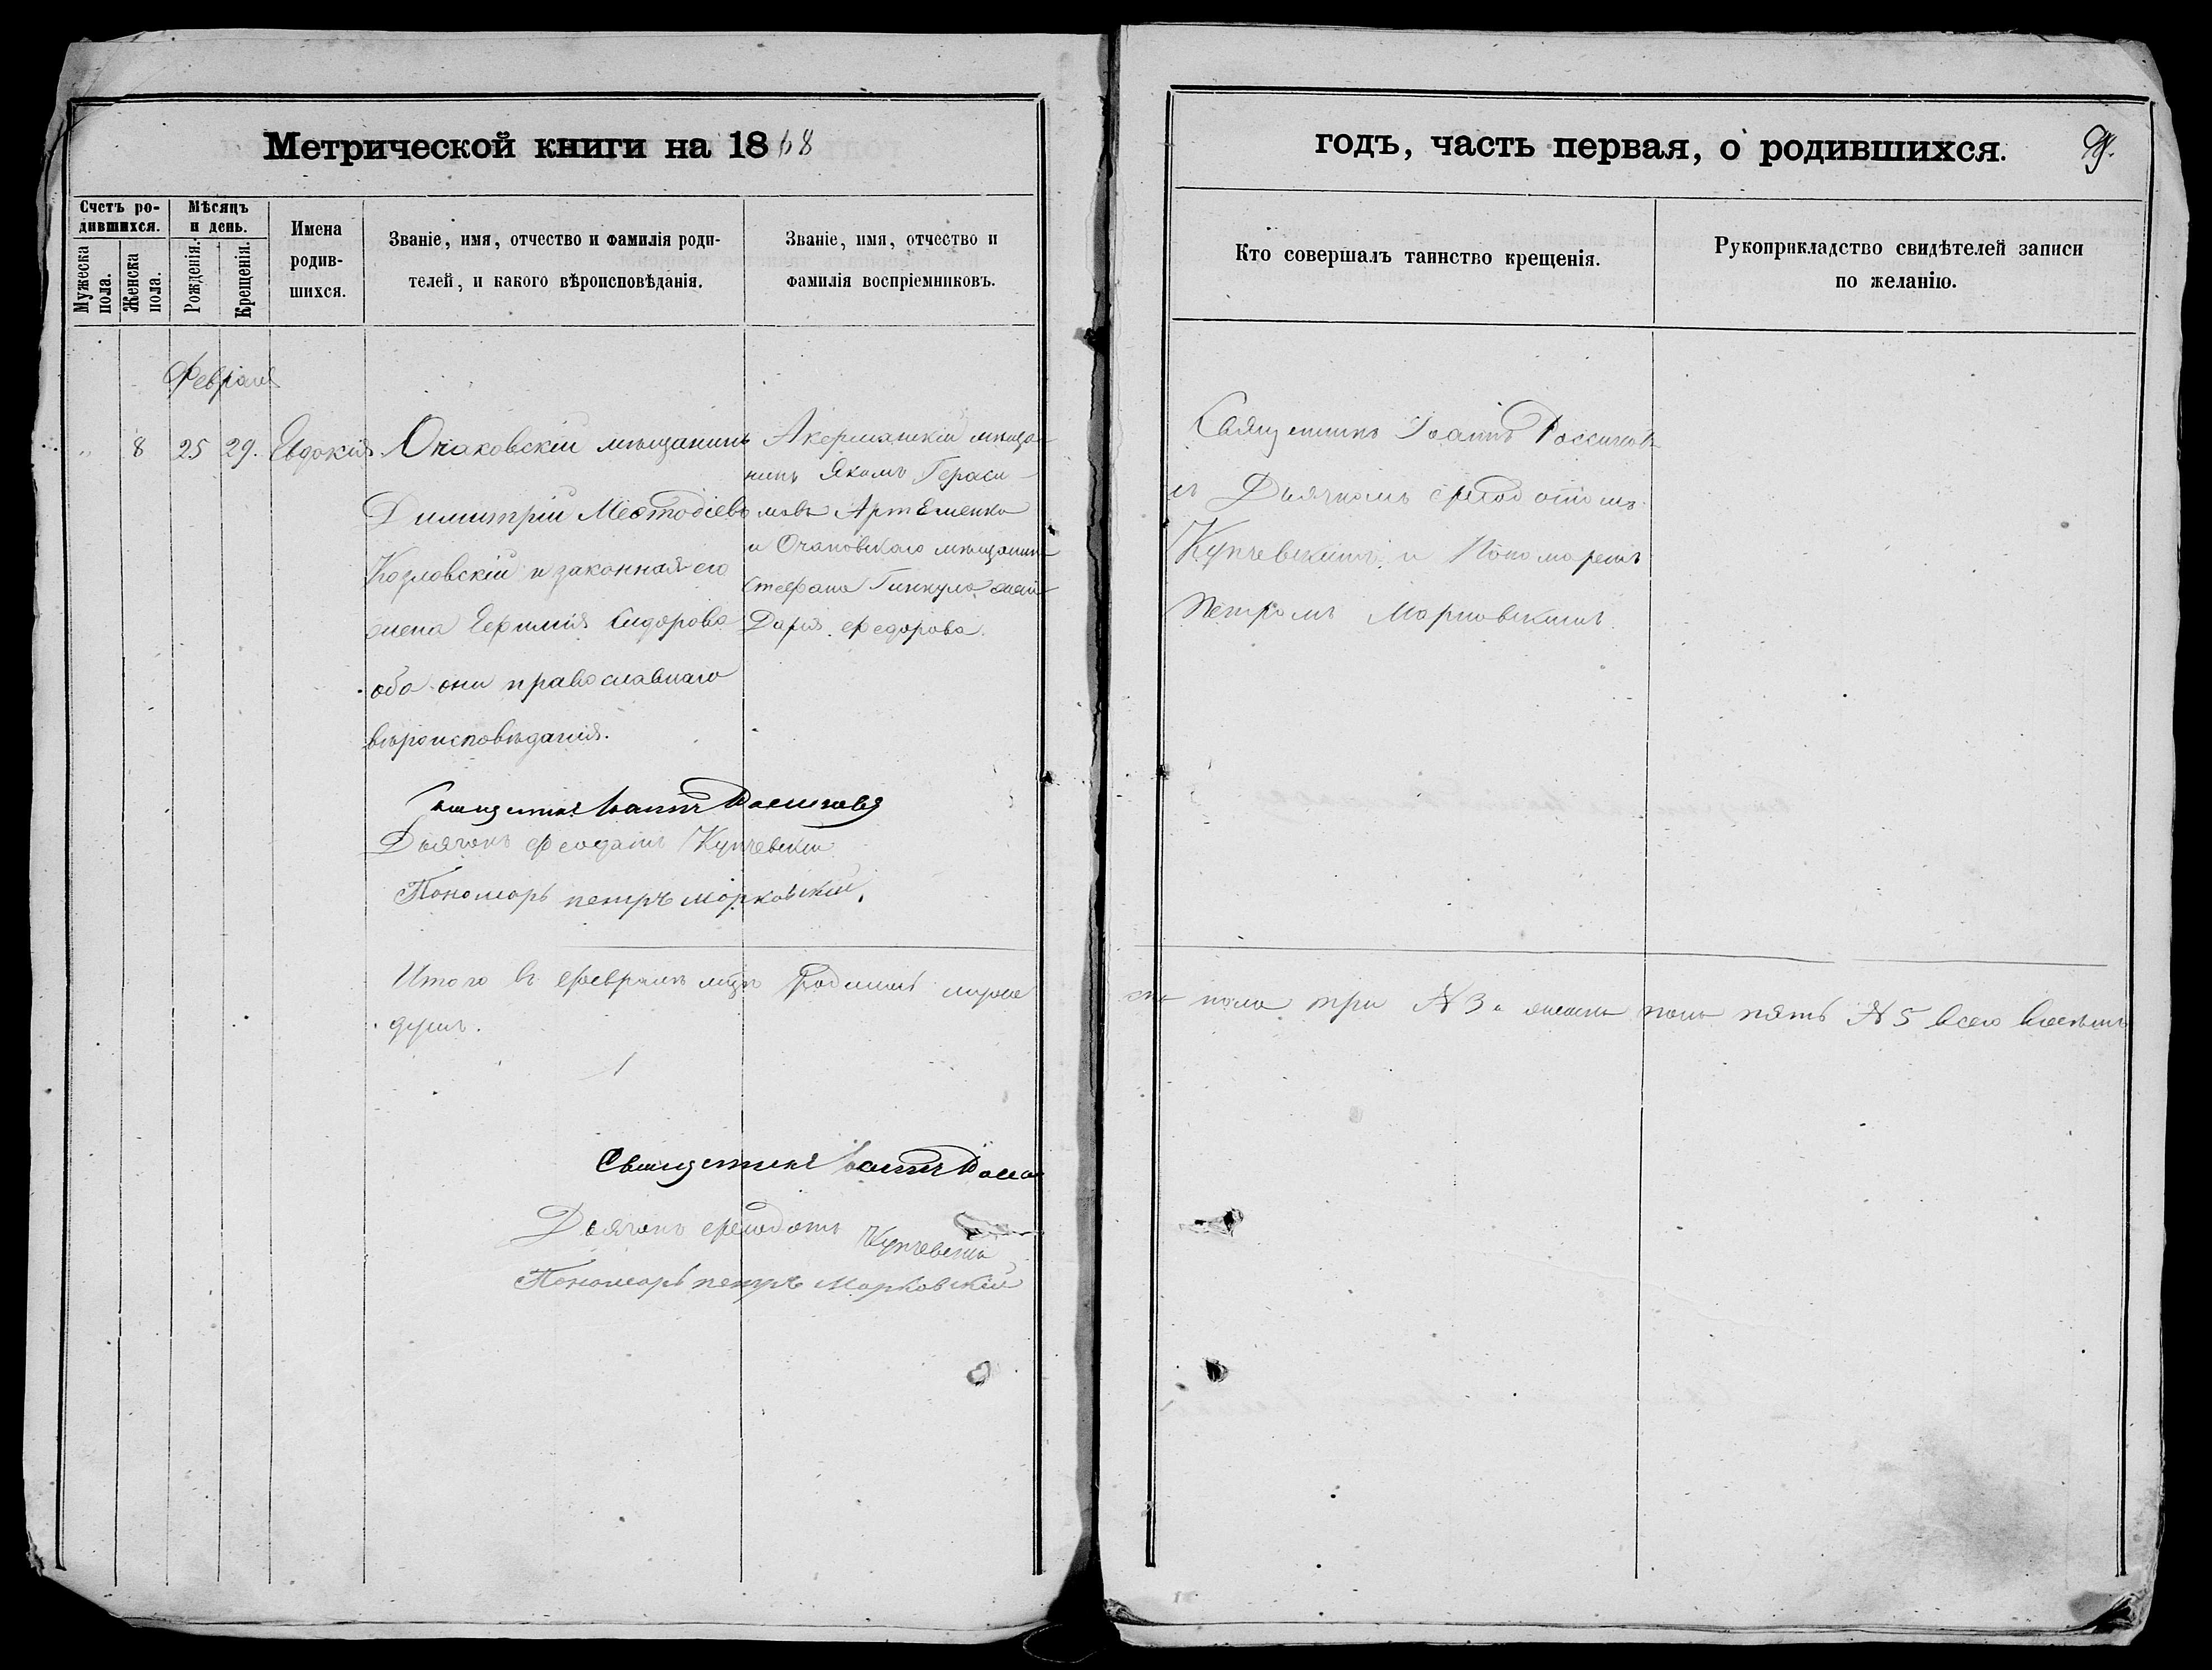 Метрической книги на 1868
годъ, часть первая, о родившихся.
Счетъ ро-
дившихся.
Мужеска
пола.
Женска
пола.
Мѣсяцъ
и день.
Рожденія.
Крещенія.
Имена
родив-
шихся.
Званіе, имя, отчество и фамилія роди-
телей, и какого вѣроисповѣданія.
Званіе, имя, отчество и
фамилія воспріемниковъ.
Кто совершалъ таинство крещенія.
Рукоприкладство свидѣтелей записи
по желанію.
Февраля
„ 8 25 29. Евдокія
Очаковскій мѣщанинъ
Димитрій Меѳодіевъ
Козловскій и законная его
жена Евфимія Сидорова
оба они православнаго
вѣроисповѣданія.
Акерманскій мѣща-
нинъ Якомъ Гераси-
мовъ Артеменко
и Очаковскаго мѣщанин
Стефана жена
Дарія Федорова.
Священникъ Іоаннъ
съ Дьячкомъ Феодотомъ
Купчевскимъ и Пономаремъ
Петромъ Марковскимъ.
Священникъ Іоаннъ
Дьячокъ Феодотъ Купчевскій
Пономарь петръ Марковскій.
Итого въ Февралѣ мцѣ родилось мужс
ск пола три № 3 а женска пола пять № 5 всего восемь
душъ.
Священникъ Іоаннъ
Дьячокъ Феодотъ Купчевскій
Пономарь петръ Марковскій